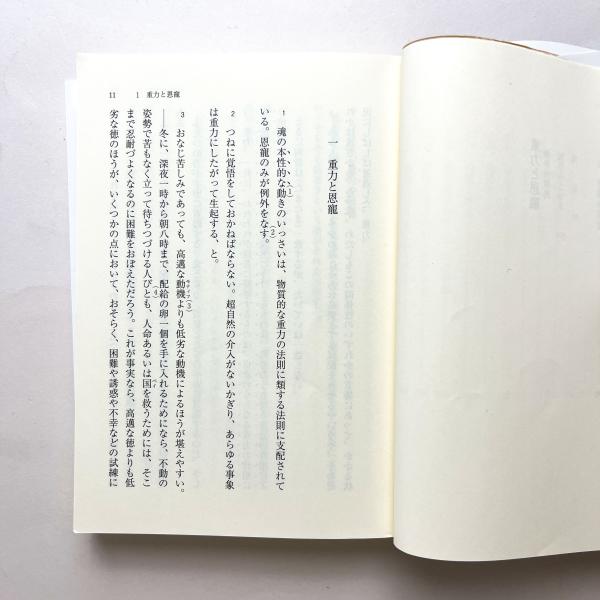 11　1　重力と恩寵
一　重力と恩寵
1　魂の本性的な動きのいっさいは、物質的な重力の法則に類する法則に支配されて
いる。恩寵のみが例外をなす。
2　つねに覚悟をしておかねばならない。超自然の介入がないかぎり、あらゆる事象
は重力にしたがって生起する、と。
3　おなじ苦しみであっても、高邁な動機よりも低劣な動機によるほうが堪えやすい。
――冬に、深夜一時から朝八時まで、配給の卵一個を手に入れるためになら、不動の
姿勢で苦もなく立って待ちつづける人びとも、人命あるいは国を救うためには、そこ
まで忍耐づよくなるのに困難をおぼえただろう。これが事実なら、高邁な徳よりも低
劣な徳のほうが、いくつかの点において、おそらく、困難や誘惑や不幸などの試練に